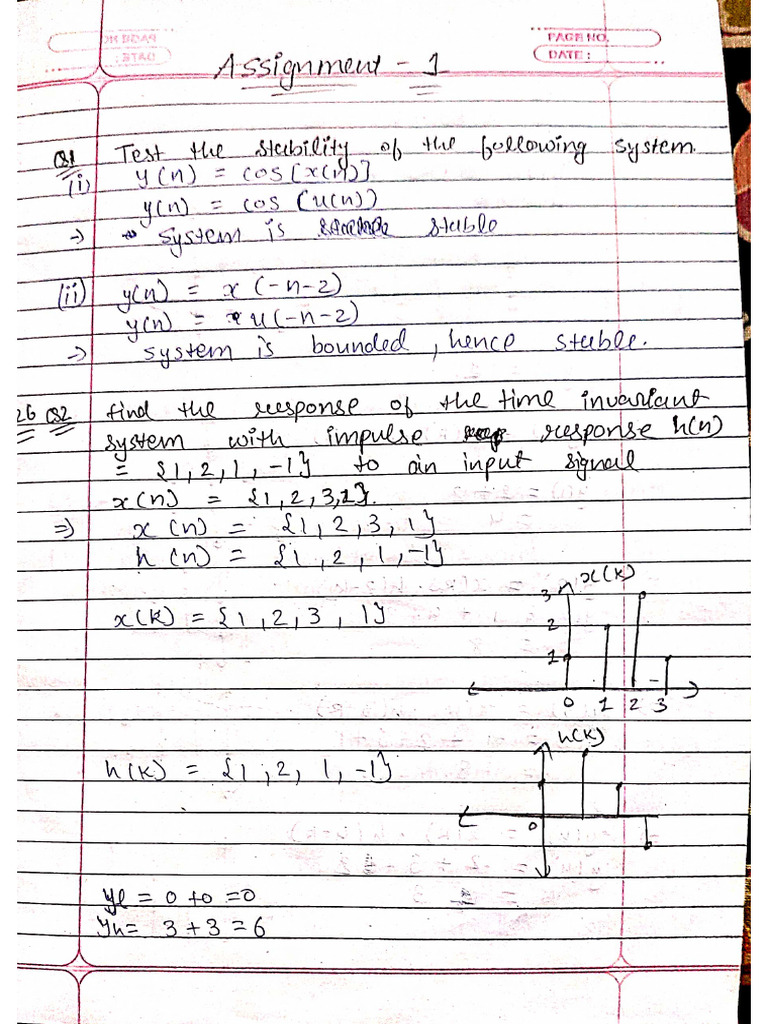 PAGE NO.
DATE :
Assignment - 1
Q1 Test the stability of the following system.
(i) y(n) = cos[x(n)]
y(n) = cos (u(n))
→ System is stable
(ii) y(n) = x(-n-2)
y(n) = u(-n-2)
→ system is bounded, hence stable.
26 Q2 find the response of the time invariant
system with impulse response h(n)
= {1, 2, 1, -1} to an input signal
x(n) = {1, 2, 3, 1}.
⇒ x(n) = {1, 2, 3, 1}
h(n) = {1, 2, 1, -1}
x(k)
3
x(k) = {1, 2, 3, 1}
2
1
0 1 2 3
h(k)
h(k) = {1, 2, 1, -1}
0
yl = 0 + 0 = 0
yu = 3 + 3 = 6